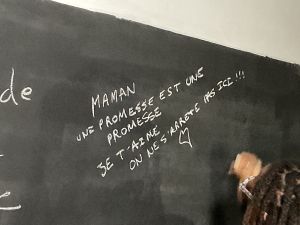 de
MAMAN
UNE PROMESSE EST UNE
PROMESSE
JE T'AIME
ON NE S'ARRETE PAS ICI !!!